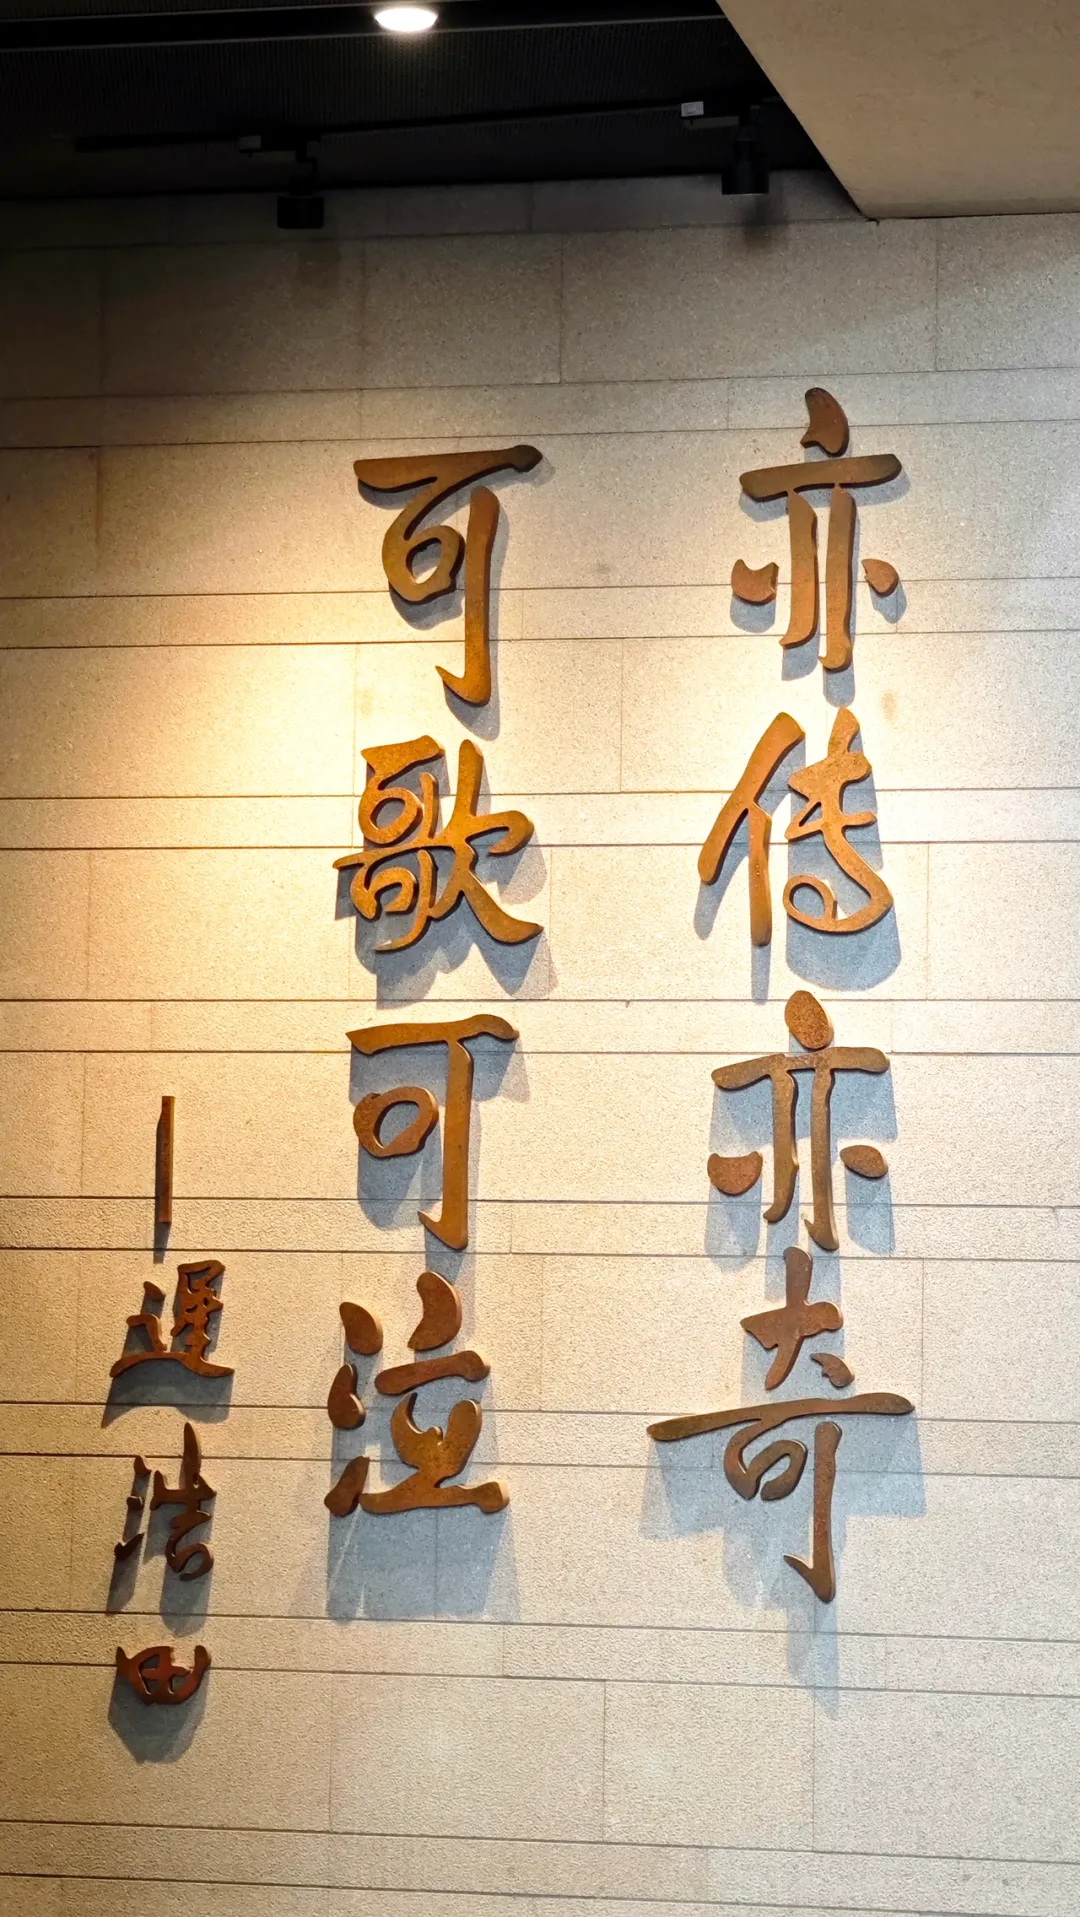 亦传亦奇
可歌可泣
—遲浩田